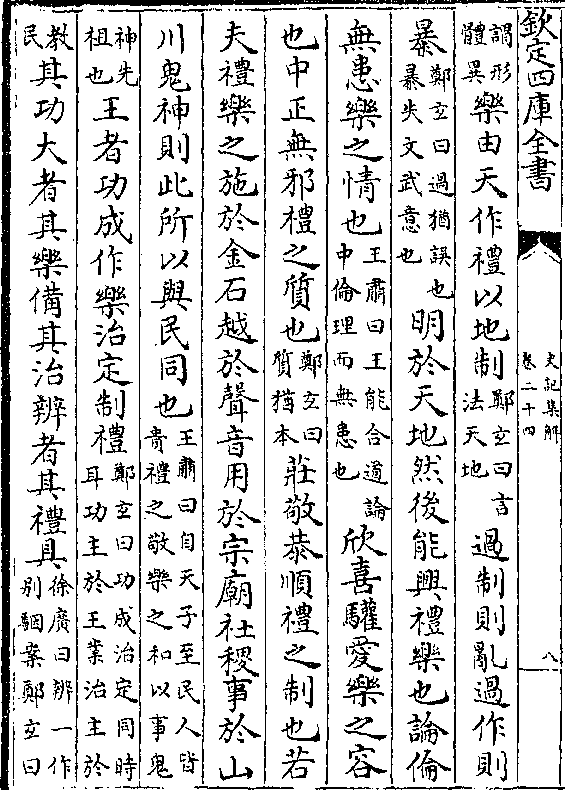 欽定四庫全書
史記集解
卷二十四
八
謂形體異樂由天作禮以地制鄭玄曰言法天地過制則亂過作則
暴鄭玄曰過猶誤也暴失文武意也明於天地然後能興禮樂也論倫
無患樂之情也王肅曰王能合道論中倫理而無患也欣喜驩愛樂之容
也中正無邪禮之質也鄭玄曰質猶本莊敬恭順禮之制也若
夫禮樂之施於金石越於聲音用於宗廟社稷事於山
川鬼神則此所以與民同也王肅曰自天子至民人皆貴禮之敬樂之和以事鬼
神先祖也王者功成作樂治定制禮鄭玄曰功成治定同時耳功主於王業治主於
教民其功大者其樂備其治辨者其禮具徐廣曰辨一作別駰案鄭玄曰